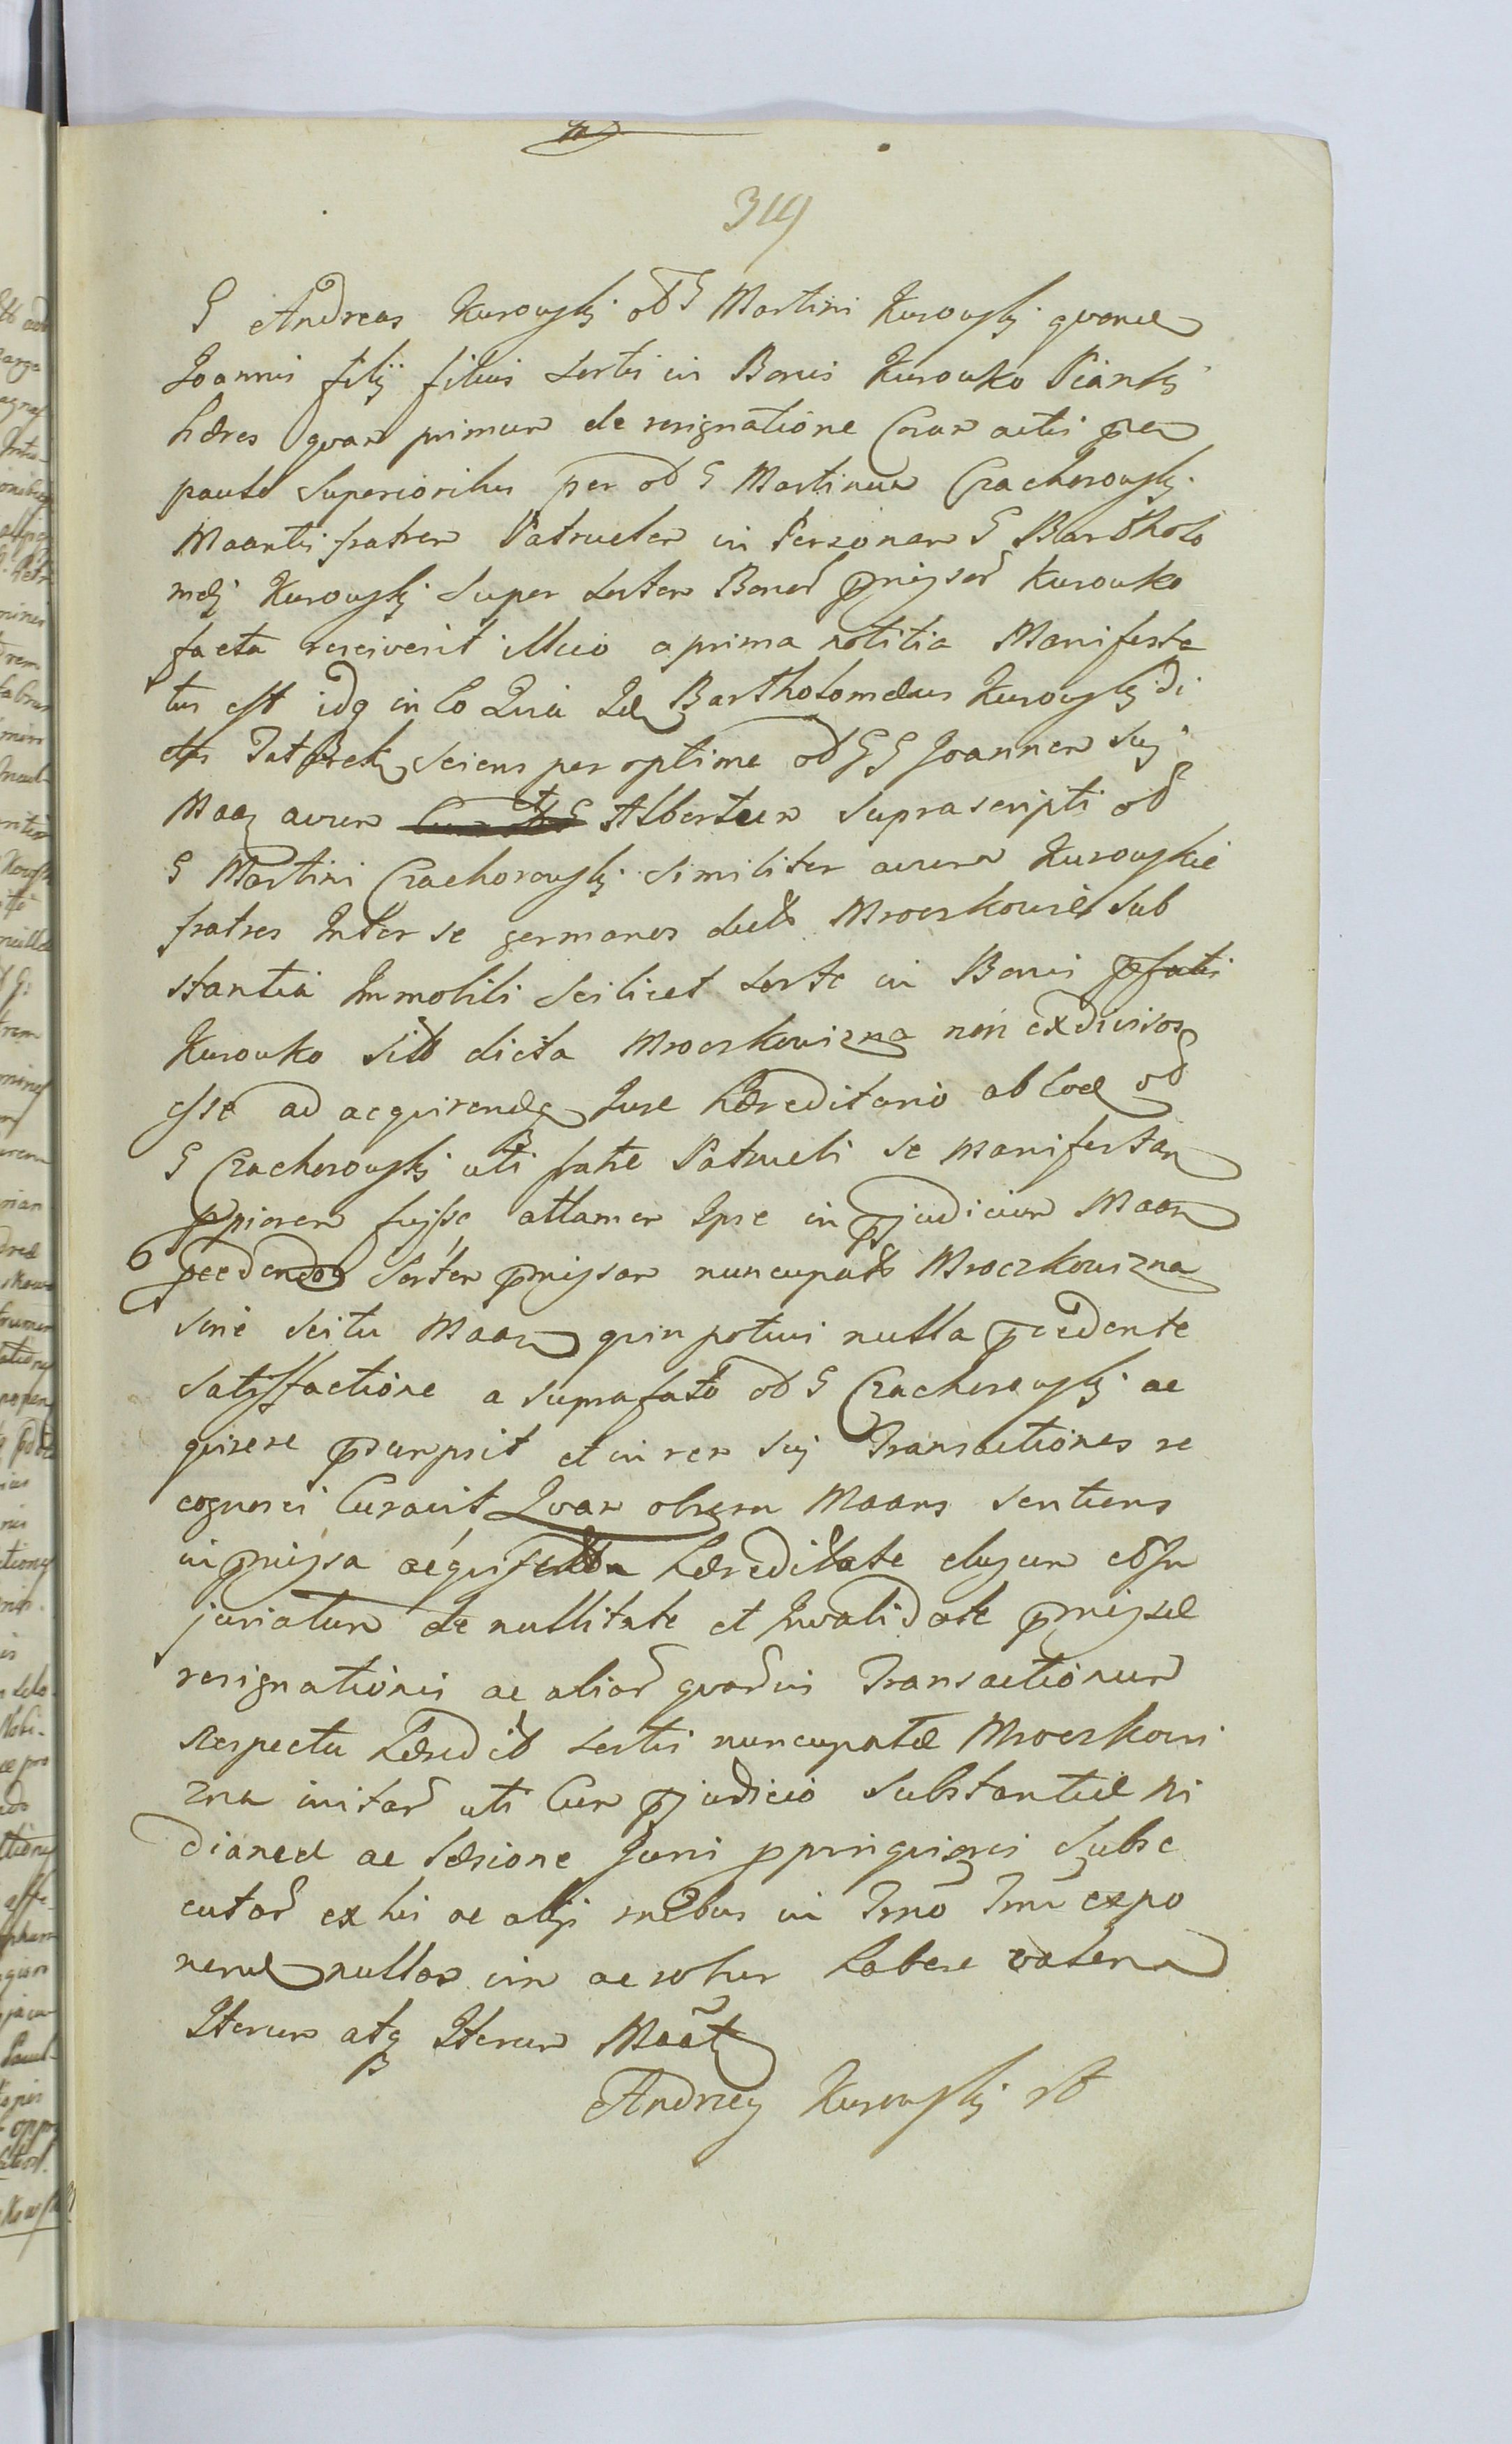 319
G Andreas Kurowskj olB G Martini Kurowskj qvond
Joannis filij filius sortis in Bonis Kurowko Pianki
hæres qvam primum de resignatione Coram actis p
paulo superioribus per olB G Martinum Czachorowskj
Maantis fratrem Patruelem in Personam G Bartholo
mæj Kurowskj super sortem Bonor pmissor Kurowko
facta resciverit illico a prima notitia Manifesta
tus est idq in Eo Qvia Id Bartholomæus Kurowskj di
ctus sciens peroptime olB GG Joannem suj
Maan avum Albertum suprascripti olB
G Martini Czachorowskj similiter avum Kurowskie
fratres Inter se germanos dictt Mroczkowie sub
stantia Immobili scilicet sorte in Bonis pfatis
Kurowko sitt dicta Mroczkowizna non exdivisos
esse ad acqvirend Jure Hæreditario ab Eod olB
G Czachorowskj uti fratre Patrueli se manifestan
ppiorem fuisse attamen Ipse in pjudicium Maan
sortem pmissam nuncupatt Mroczkowizna
sine scitu Maan qvin potius nulla pcedente
satisffactione a suprafato olB G Czachorowskj ac
qvirere psumpsit et in rem suj Transactiones re
cognosci Curavit Qvam obrem Maans sentiens
in pmissa Hæreditate elusum et In
juriatum de nullitate et Invalidate pmissæ
resignationis ac alior qvorvis Transactionum
respectu Heredit sortis nuncupatæ Mroczkowi
zna initar uti Cum pjudicio substantiæ M
dianeæ ac læsione Juris ppinqvioris subse
cutar ex his ac alijs in Trno Trni expo
nend nullas vim ac robur habere valen
Iterum atq Iterum Maat
Andrzey Kurowskj